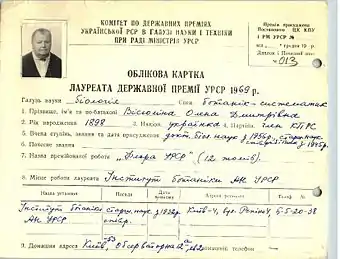 КОМІТЕТ ПО ДЕРЖАВНИХ ПРЕМІЯХ
УКРАЇНСЬКОЇ РСР В ГАЛУЗІ НАУКИ І ТЕХНІКИ
ПРИ РАДІ МІНІСТРІВ УРСР
Премія присуджена
Постановою ЦК КПУ
і РМ УРСР №
від грудня 19 р.
013
ОБЛІКОВА КАРТКА
ЛАУРЕАТА ДЕРЖАВНОЇ ПРЕМІЇ УРСР 1969 р.
Галузь науки Біологія ботанік-систематик
1. Прізвище, ім'я та по-батькові Вісюліна Олена Дмитрівна
2. Рік народження 1898 3. Націон. українка 4. Партійн. член КПРС
5. Вчена ступінь, звання та дата присудження докт. біол. наук
6. Почесне звання
7. Назва премійованої роботи „Флора УРСР" (12 томів).
8. Місце роботи лауреата Інститут ботаніки АН УРСР
Назва установи Посада Дата Адреса установи Телеф.
Інститут ботаніки АН УРСР Київ-4, вул. Репіна 5-5-20-38
9. Домашня адреса Київ, Обсерваторна телефон